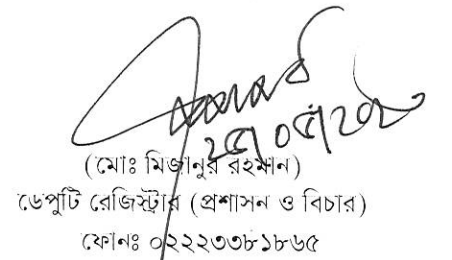 (মোঃ মিজানুর রহমান)
ডেপুটি রেজিস্ট্রার (প্রশাসন ও বিচার)
ফোনঃ ০২২২৩৩৮১৮৬৫